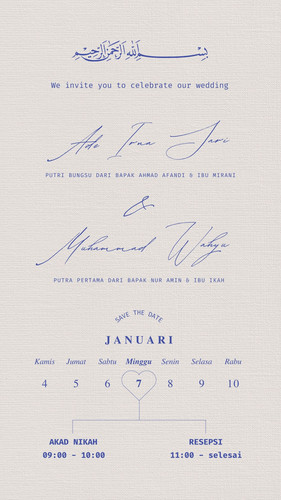 بسم الله الرحمن الرحيم
We invite you to celebrate our wedding
Ade Irna Sari
PUTRI BUNGSU DARI BAPAK AHMAD AFANDI & IBU MIRANI
&
Muhammad Wahyu
PUTRA PERTAMA DARI BAPAK NUR AMIN & IBU IKAH
SAVE THE DATE
JANUARI
Kamis Jumat Sabtu Minggu Senin Selasa Rabu
4 5 6 7 8 9 10
AKAD NIKAH RESEPSI
09:00 – 10:00 11:00 – selesai